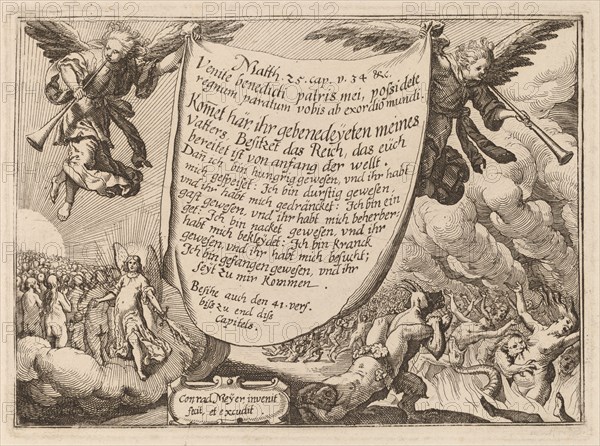 Matth. 25. cap. v. 34 &c.
Venite benedicti patris mei, possidete
regnum paratum vobis ab exordio mundi.
Komet här, ihr gebenedeyeten meines
Vatters, Besitzet das Reich, das euch
bereitet ist von anfang der wellt.
Dan̄ ich bin hungrig gewesen, vnd ihr habt
mich gespeisset: Ich bin durstig gewesen,
vnd ihr habt mich gedräncket: Ich bin ein
gast gewesen, vnd ihr habt mich beherber,
get: Ich bin nacket gewesen, vnd ihr
habt mich bekleydet: Ich bin Kranck
gewesen, vnd ihr habt mich besucht;
Ich bin gefangen gewesen, vnd ihr
seyt zu mir kommen.
Besihe auch den 41. vers.
biss zu end diss
Capitels.
Conrad. Meÿer invenit
fecit, et excudit.